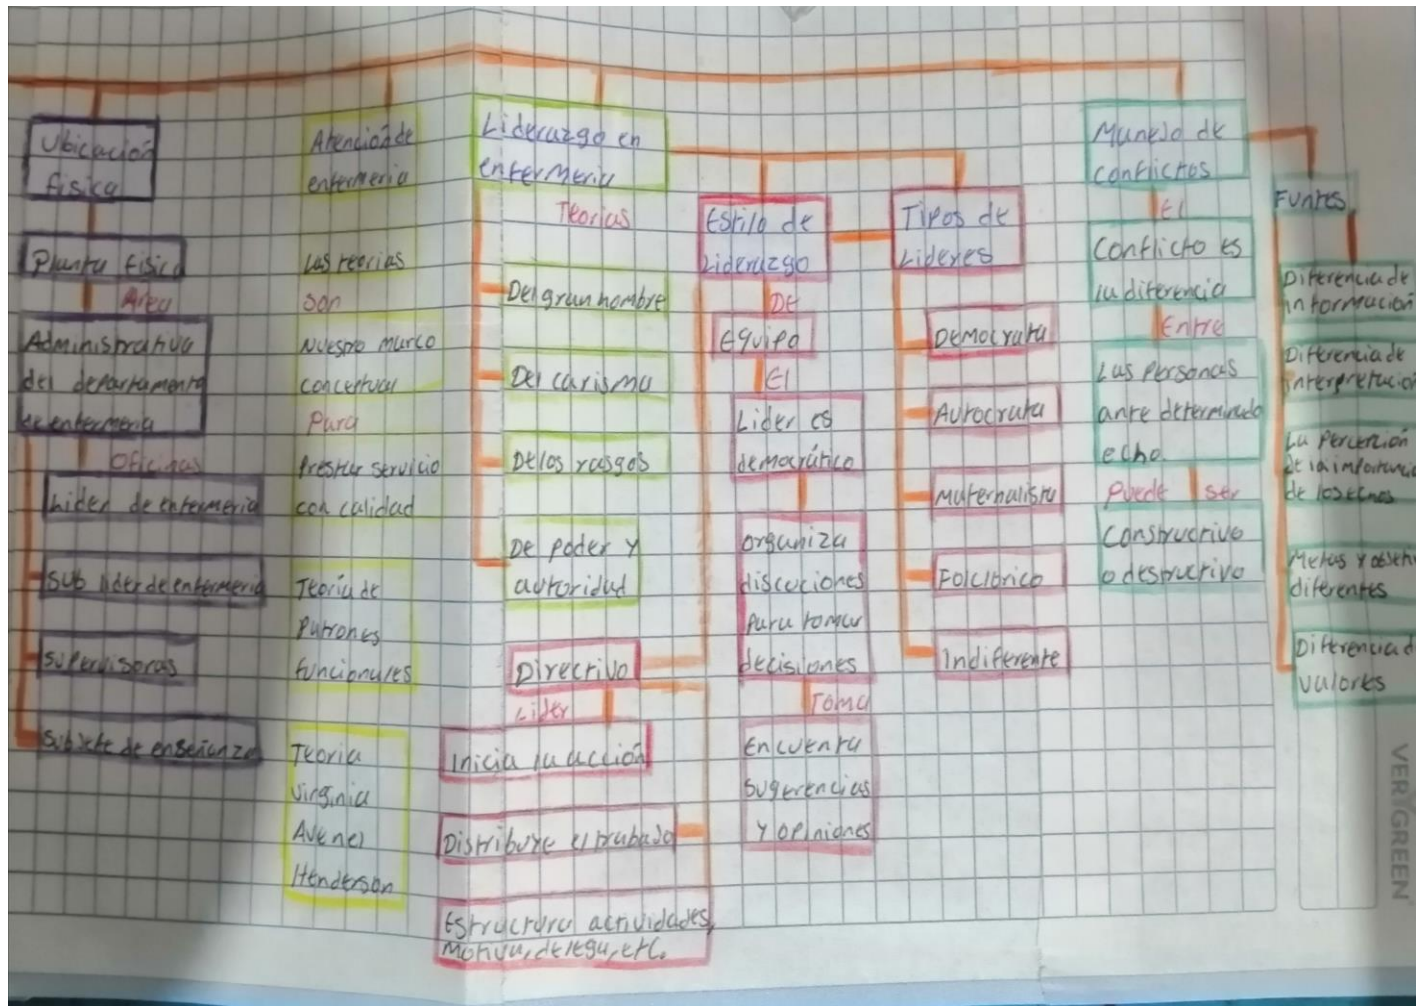 Ubicación
fisica
Planta fisica
Area
Administrativa
del departamento
de enfermeria
Oficinas
Lider de enfermeria
Sub lider de enfermeria
Supervisoras
Subjefe de enseñanza
Atención de
enfermeria
Las teorias
son
Nuestro marco
conceptual
Para
Prestar servicio
con calidad
Teoría de
Patrones
funcionales
Teoria
Virginia
Avenel
Henderson
Liderazgo en
enfermeria
Teorias
Del gran hombre
Del carisma
De los rasgos
De poder y
autoridad
Directivo
Lider
Inicia la acción
Distribuye el trabado
Estructura actividades,
motiva, delega, etc.
Estilo de
Liderazgo
De
Equipo
El
Lider es
democrático
organiza
discuciones
para tomar
decisiones
Toma
Encuenta
sugerencias
y opiniones
Tipos de
Lideres
Democrata
Autocrata
Maternalista
Folclórico
Indiferente
Manejo de
conflictos
El
Conflicto es
la diferencia
Entre
Las personas
ante determinado
echo.
Puede ser
Constructivo
o destructivo
Funtes
Diferencia de
información
Diferencia de
interpretacion
La Percepción
de la importancia
de los echos
Metas y objetiv
diferentes
Diferencia d
valores
VERYGREEN